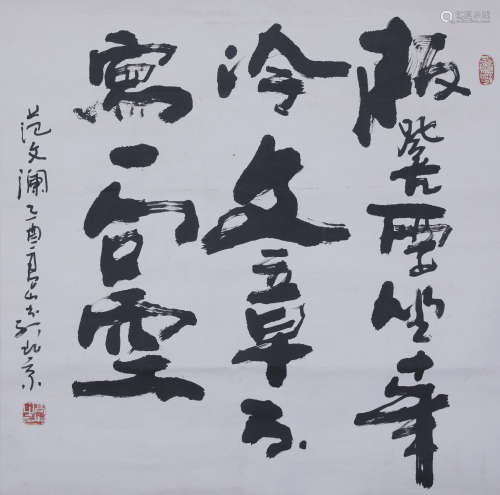 板凳要坐十年
冷文章不
寫一句空
范文瀾乙酉山书於北京